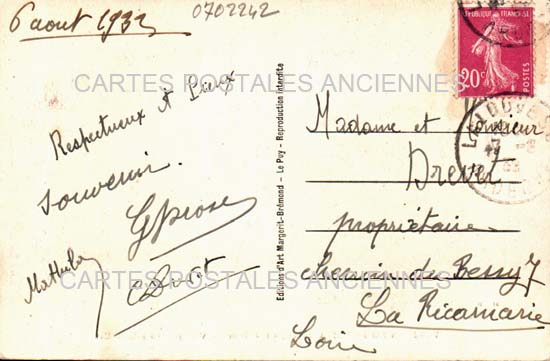 6 aout 1932
0702242
RÉPUBLIQUE FRANÇAISE
20c
POSTES
CARTES POSTALES ANCIENNES
Respectueux et
souvenir.
Mathilde
Editions d'Art Margerit-Brémond - Le Puy - Reproduction interdite
Madame et Monsieur
Drevet
propriétaire
chemin du Bessy 7
La Ricamarie
Loire
CARTES POSTALES ANCIENNES